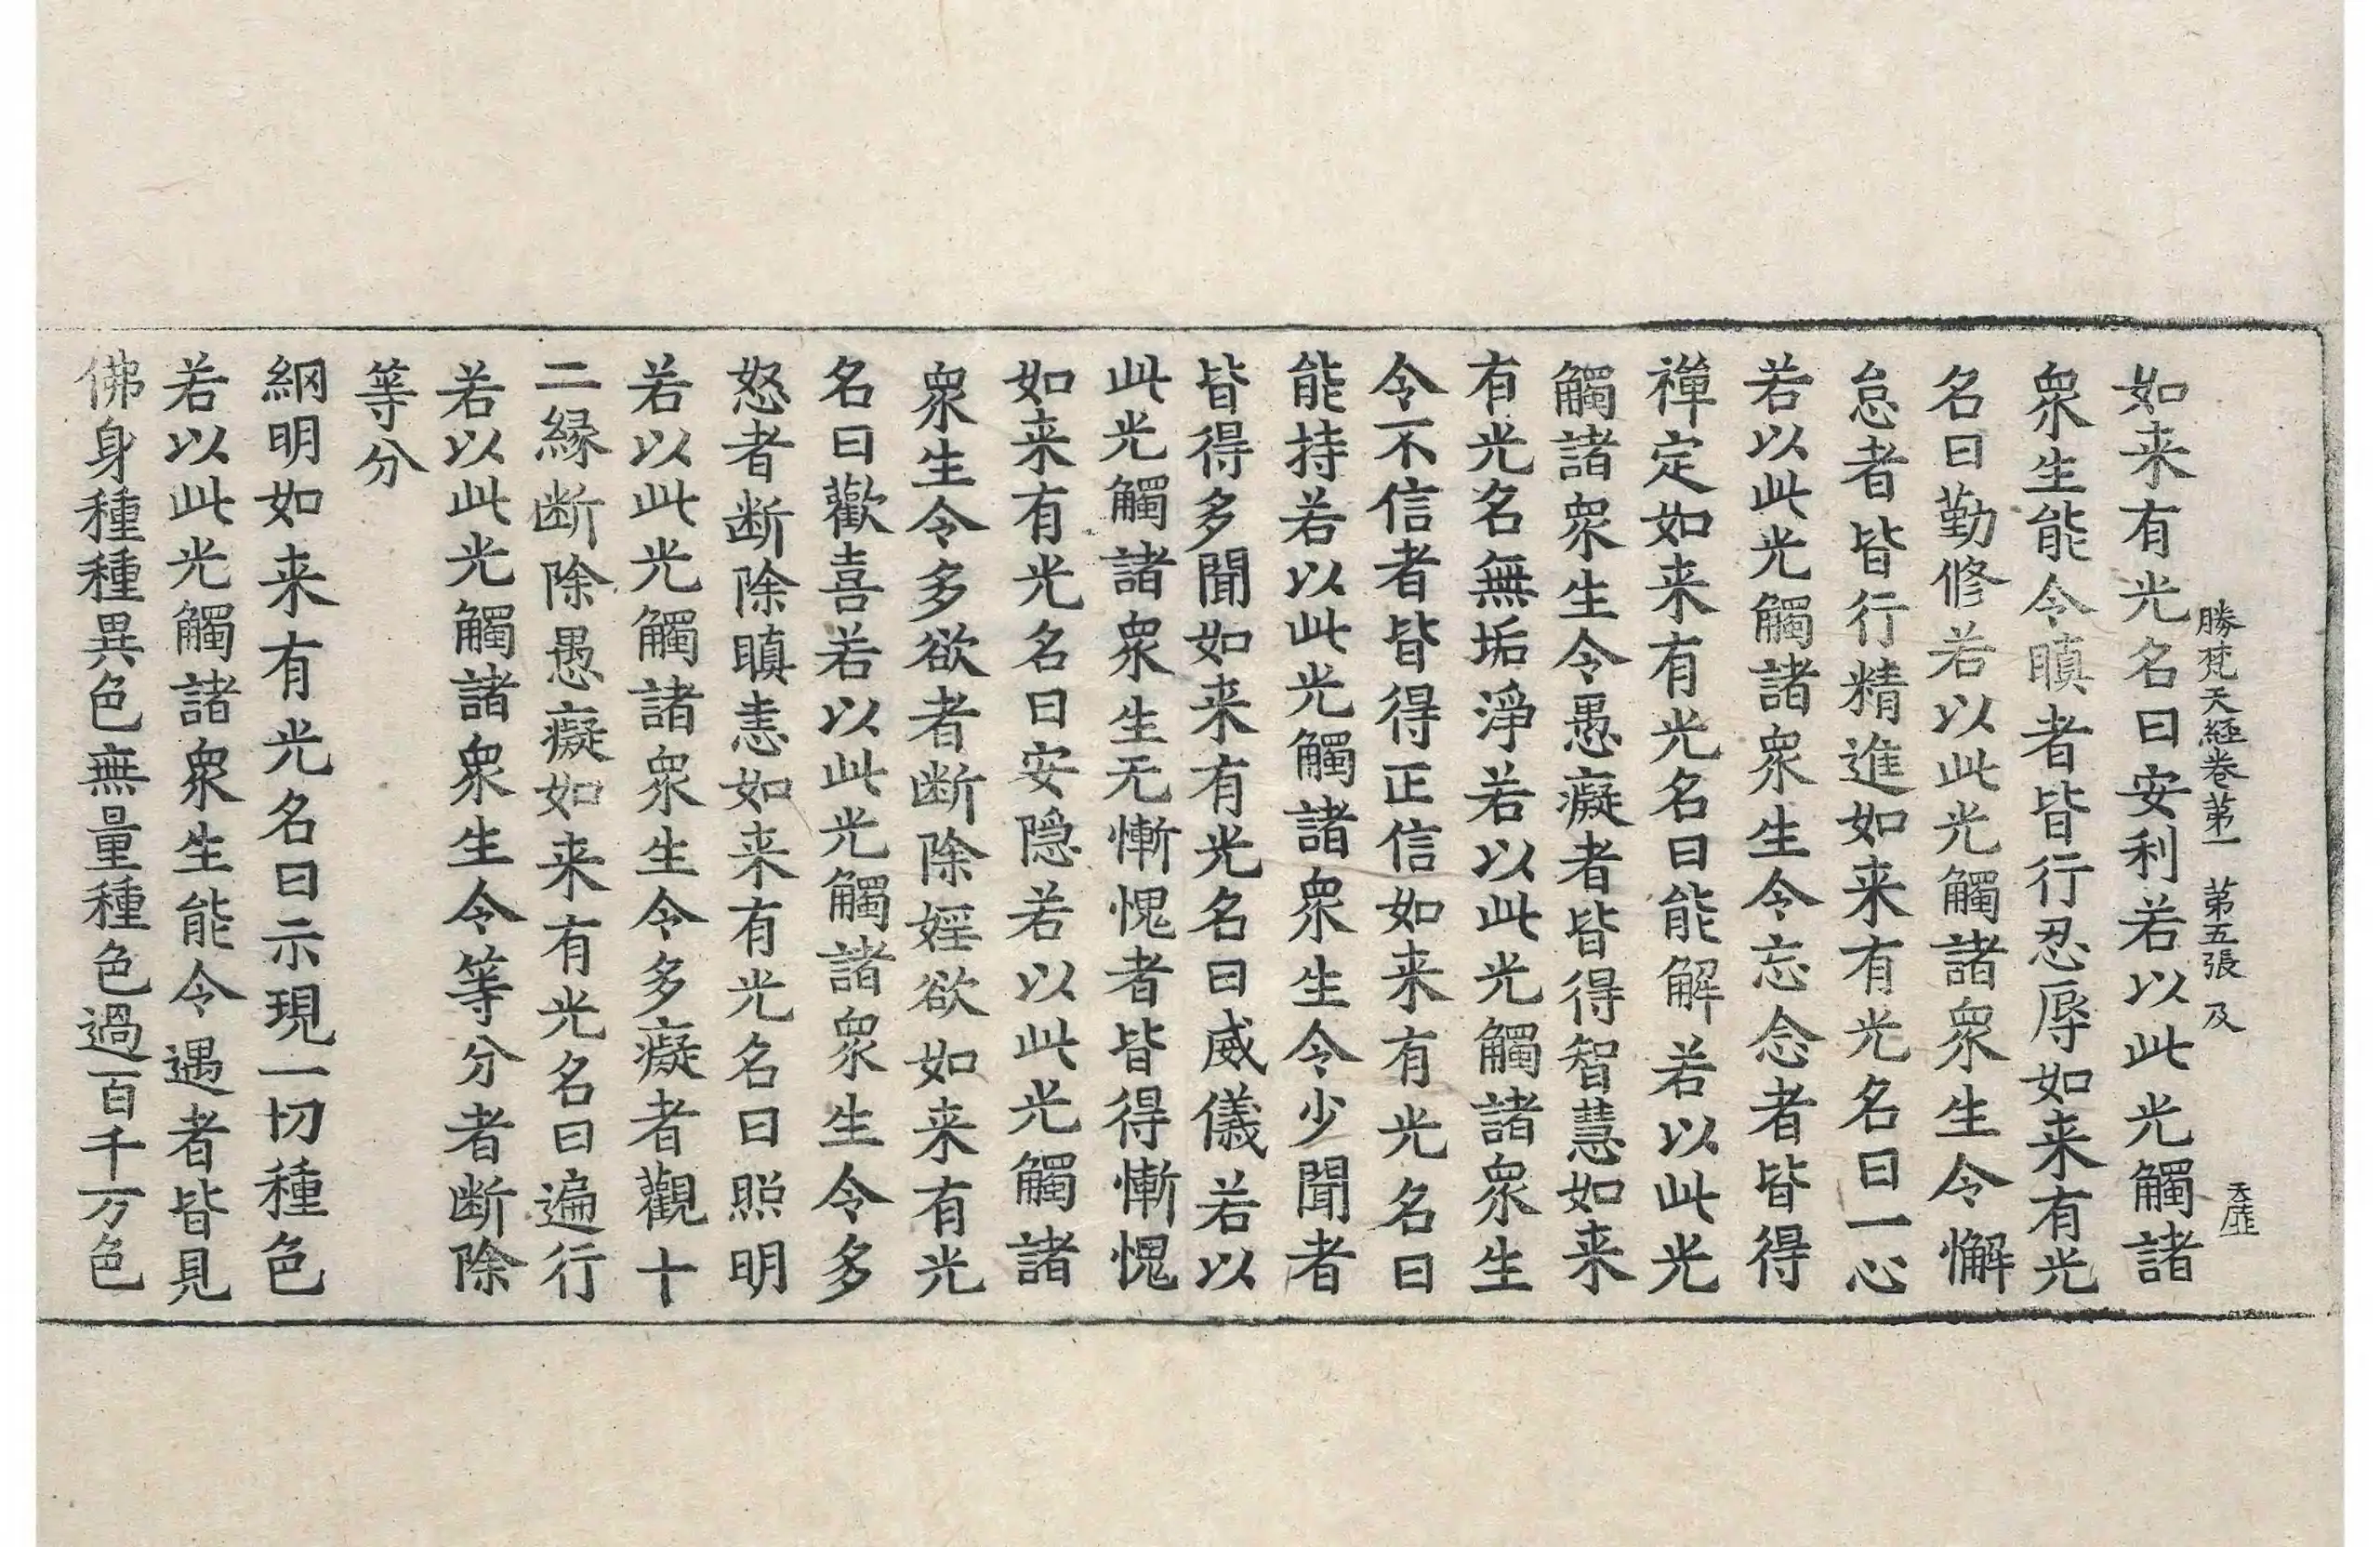 勝梵天經卷第一　第五張　及
天匪
如来有光名曰安利若以此光觸諸
衆生能令瞋者皆行忍辱如来有光
名曰勤修若以此光觸諸衆生令懈
怠者皆行精進如来有光名曰一心
若以此光觸諸衆生令忘念者皆得
禪定如来有光名曰能解若以此光
觸諸衆生令愚癡者皆得智慧如来
有光名無垢淨若以此光觸諸衆生
令不信者皆得正信如来有光名曰
能持若以此光觸諸衆生令少聞者
皆得多聞如来有光名曰威儀若以
此光觸諸衆生无慚愧者皆得慚愧
如来有光名曰安隠若以此光觸諸
衆生令多欲者断除婬欲如来有光
名曰歡喜若以此光觸諸衆生令多
怒者断除瞋恚如来有光名曰照明
若以此光觸諸衆生令多癡者觀十
二縁断除愚癡如来有光名曰遍行
若以此光觸諸衆生令等分者断除
等分
網明如来有光名曰示現一切種色
若以此光觸諸衆生能令遇者皆見
佛身種種異色無量種色過百千万色